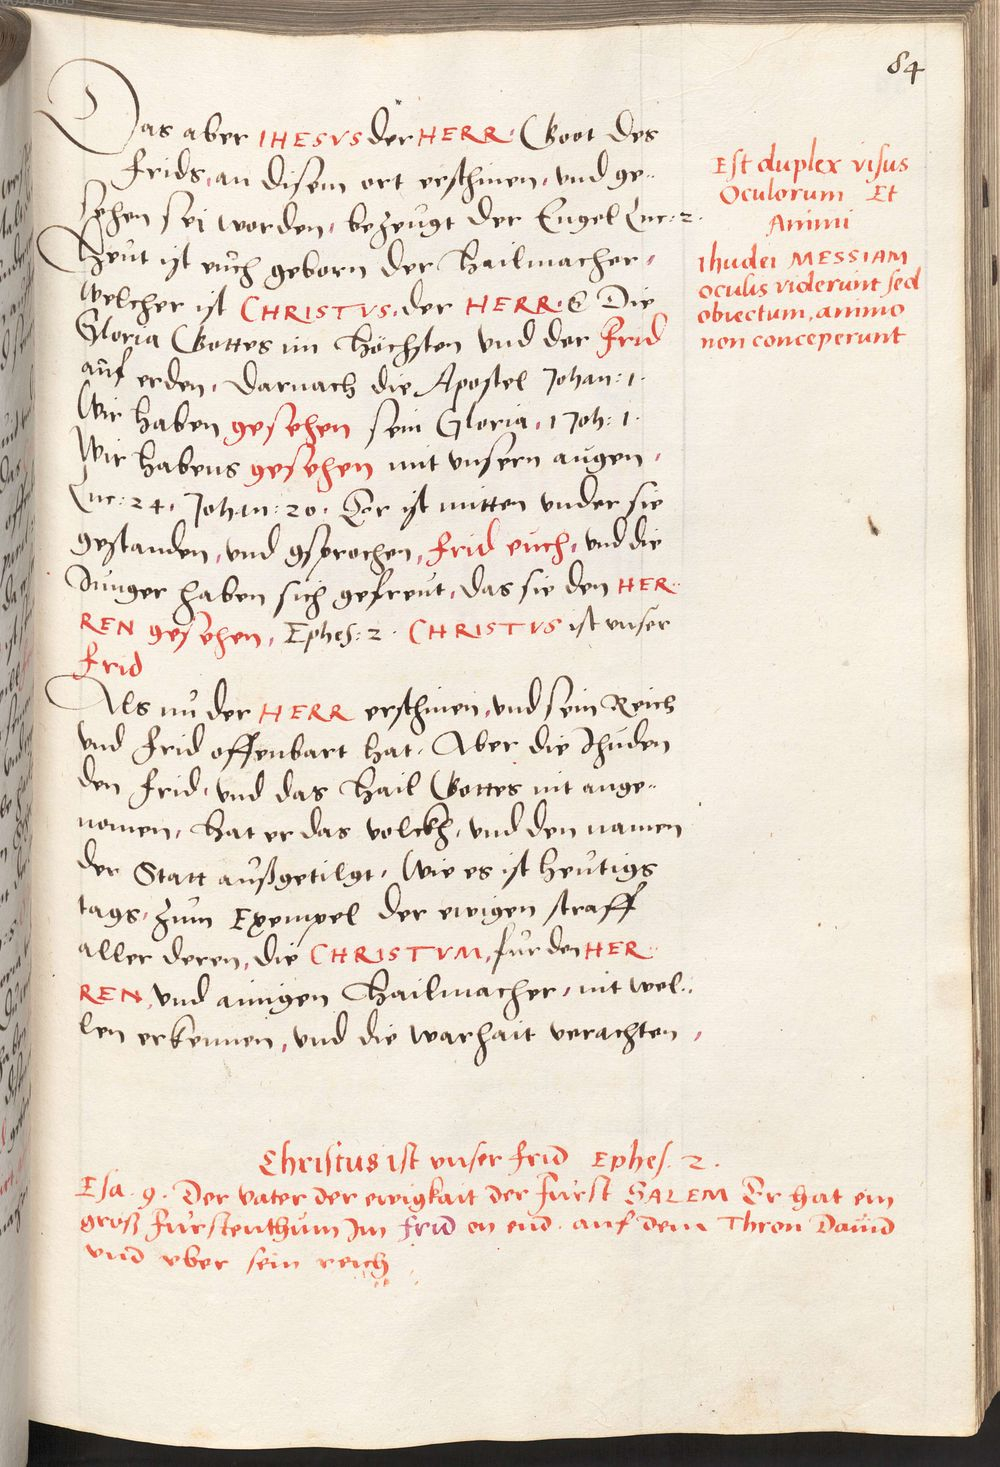 84
Das aber IHESVS der HERR. Gott des
frids, an disem ort erschinen, und ge-
sehen sei worden, bezeugt der Engel Luc: 2.
Heut ist euch geborn der Hailmacher,
welcher ist CHRISTVS, der HERR. & Die
Gloria Gottes im höchsten und der frid
auf erden, Darnach die Apostel Johan: 1.
Wir haben gesehen sein Gloria, 1 Joh: 1.
Wir habens gesehen mit unsern augen,
Luc: 24, Johan: 20. Er ist mitten under sie
gestanden, und gsprochen, frid euch, und die
Junger haben sich gefreut, das sie den HER-
REN gesehen, Ephes: 2. CHRISTVS ist unser
frid
Als nu der HERR erschinen, und sein Reich
und frid offenbart hat. Aber die Jhuden
den frid, und das Hail Gottes nit ange-
nomen, Hat er das volckh, und den namen
der Statt außgetilgt, Wie es ist heutigs
tags, zum Exempel der ewigen straff
aller deren, die CHRISTVM, fur den HER-
REN, und ainigen Hailmacher, nit wel-
len erkennen, und die warhait verachten,
Est duplex visus
Oculorum Et
Animi
Ihudei MESSIAM
oculis viderunt sed
obiectum, animo
non conceperunt
Christus ist unser frid Ephes. 2.
Esa. 9. Der vater der ewigkait der Furst SALEM Er hat ein
groß Furstenthum Im frid on end. auf dem Thron David
und uber sein reich